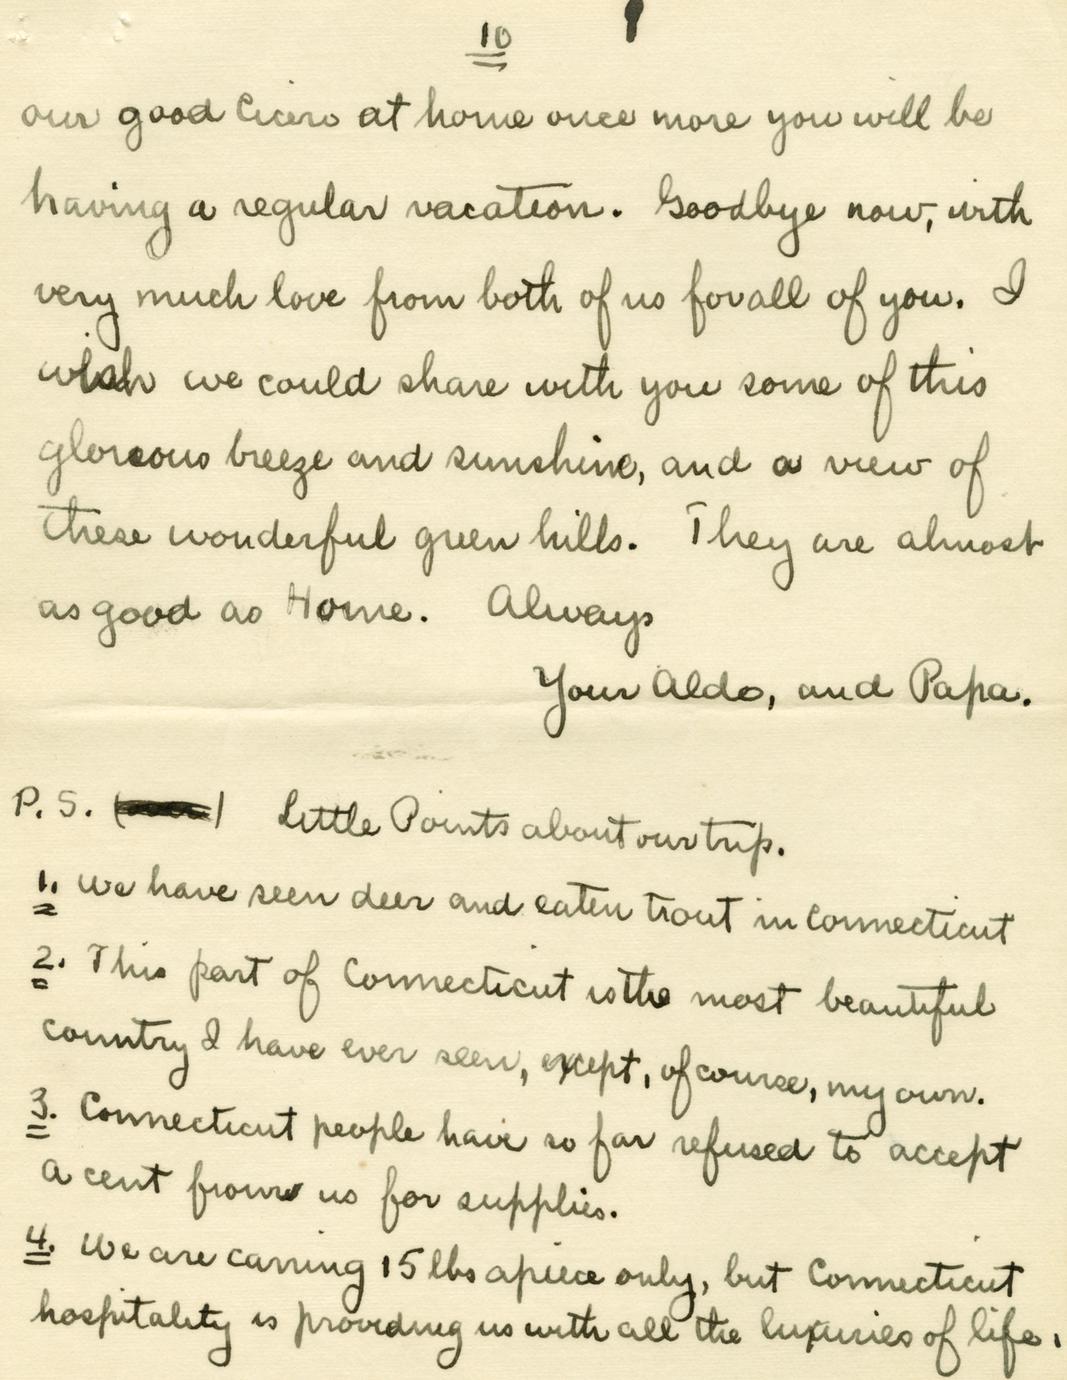 10
our good Cicero at home once more you will be
having a regular vacation. Goodbye now, with
very much love from both of us for all of you. I
wish we could share with you some of this
gloreous breeze and sunshine, and a view of
these wonderful green hills. They are almost
as good as Home. Always
Your Aldo, and Papa.
P. S. Little Points about our trip.
1. We have seen deer and eaten trout in Connecticut
2. This part of Connecticut is the most beautiful
country I have ever seen, except, of course, my own.
3. Connecticut people have so far refused to accept
a cent from us for supplies.
4. We are carring 15 lbs apiece only, but Connecticut
hospitality is providing us with all the luxuries of life.